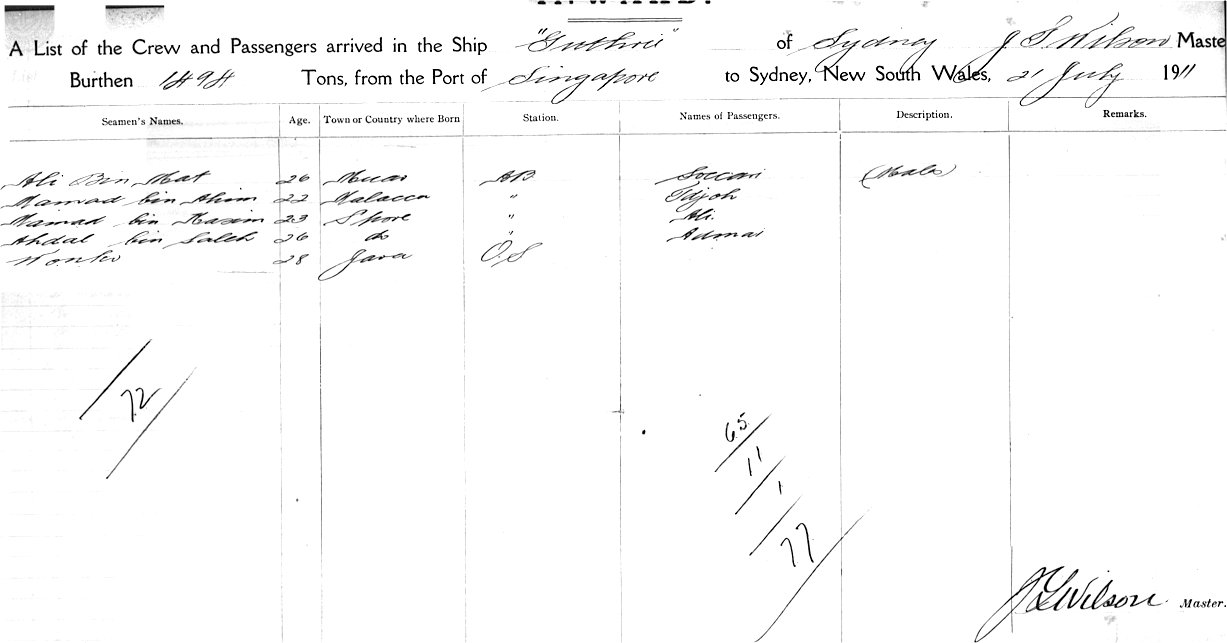 A List of the Crew and Passengers arrived in the Ship "Guthrie" of Sydney J Wilson Maste
Burthen 1494 Tons, from the Port of Singapore to Sydney, New South Wales, 21 July 1911
Seamen's Names. Age. Town or Country where Born Station. Names of Passengers. Description. Remarks.
Ali Bin Mat 26 Muar AB
Mamad bin Ahim 22 Malacca " Idjoh
Mamad bin Kasim 23 Spore " Ali.
Ahdal bin Saleh 26 do " Admai
28 Java O.S
72
65
11
1
77
J Wilson Master.